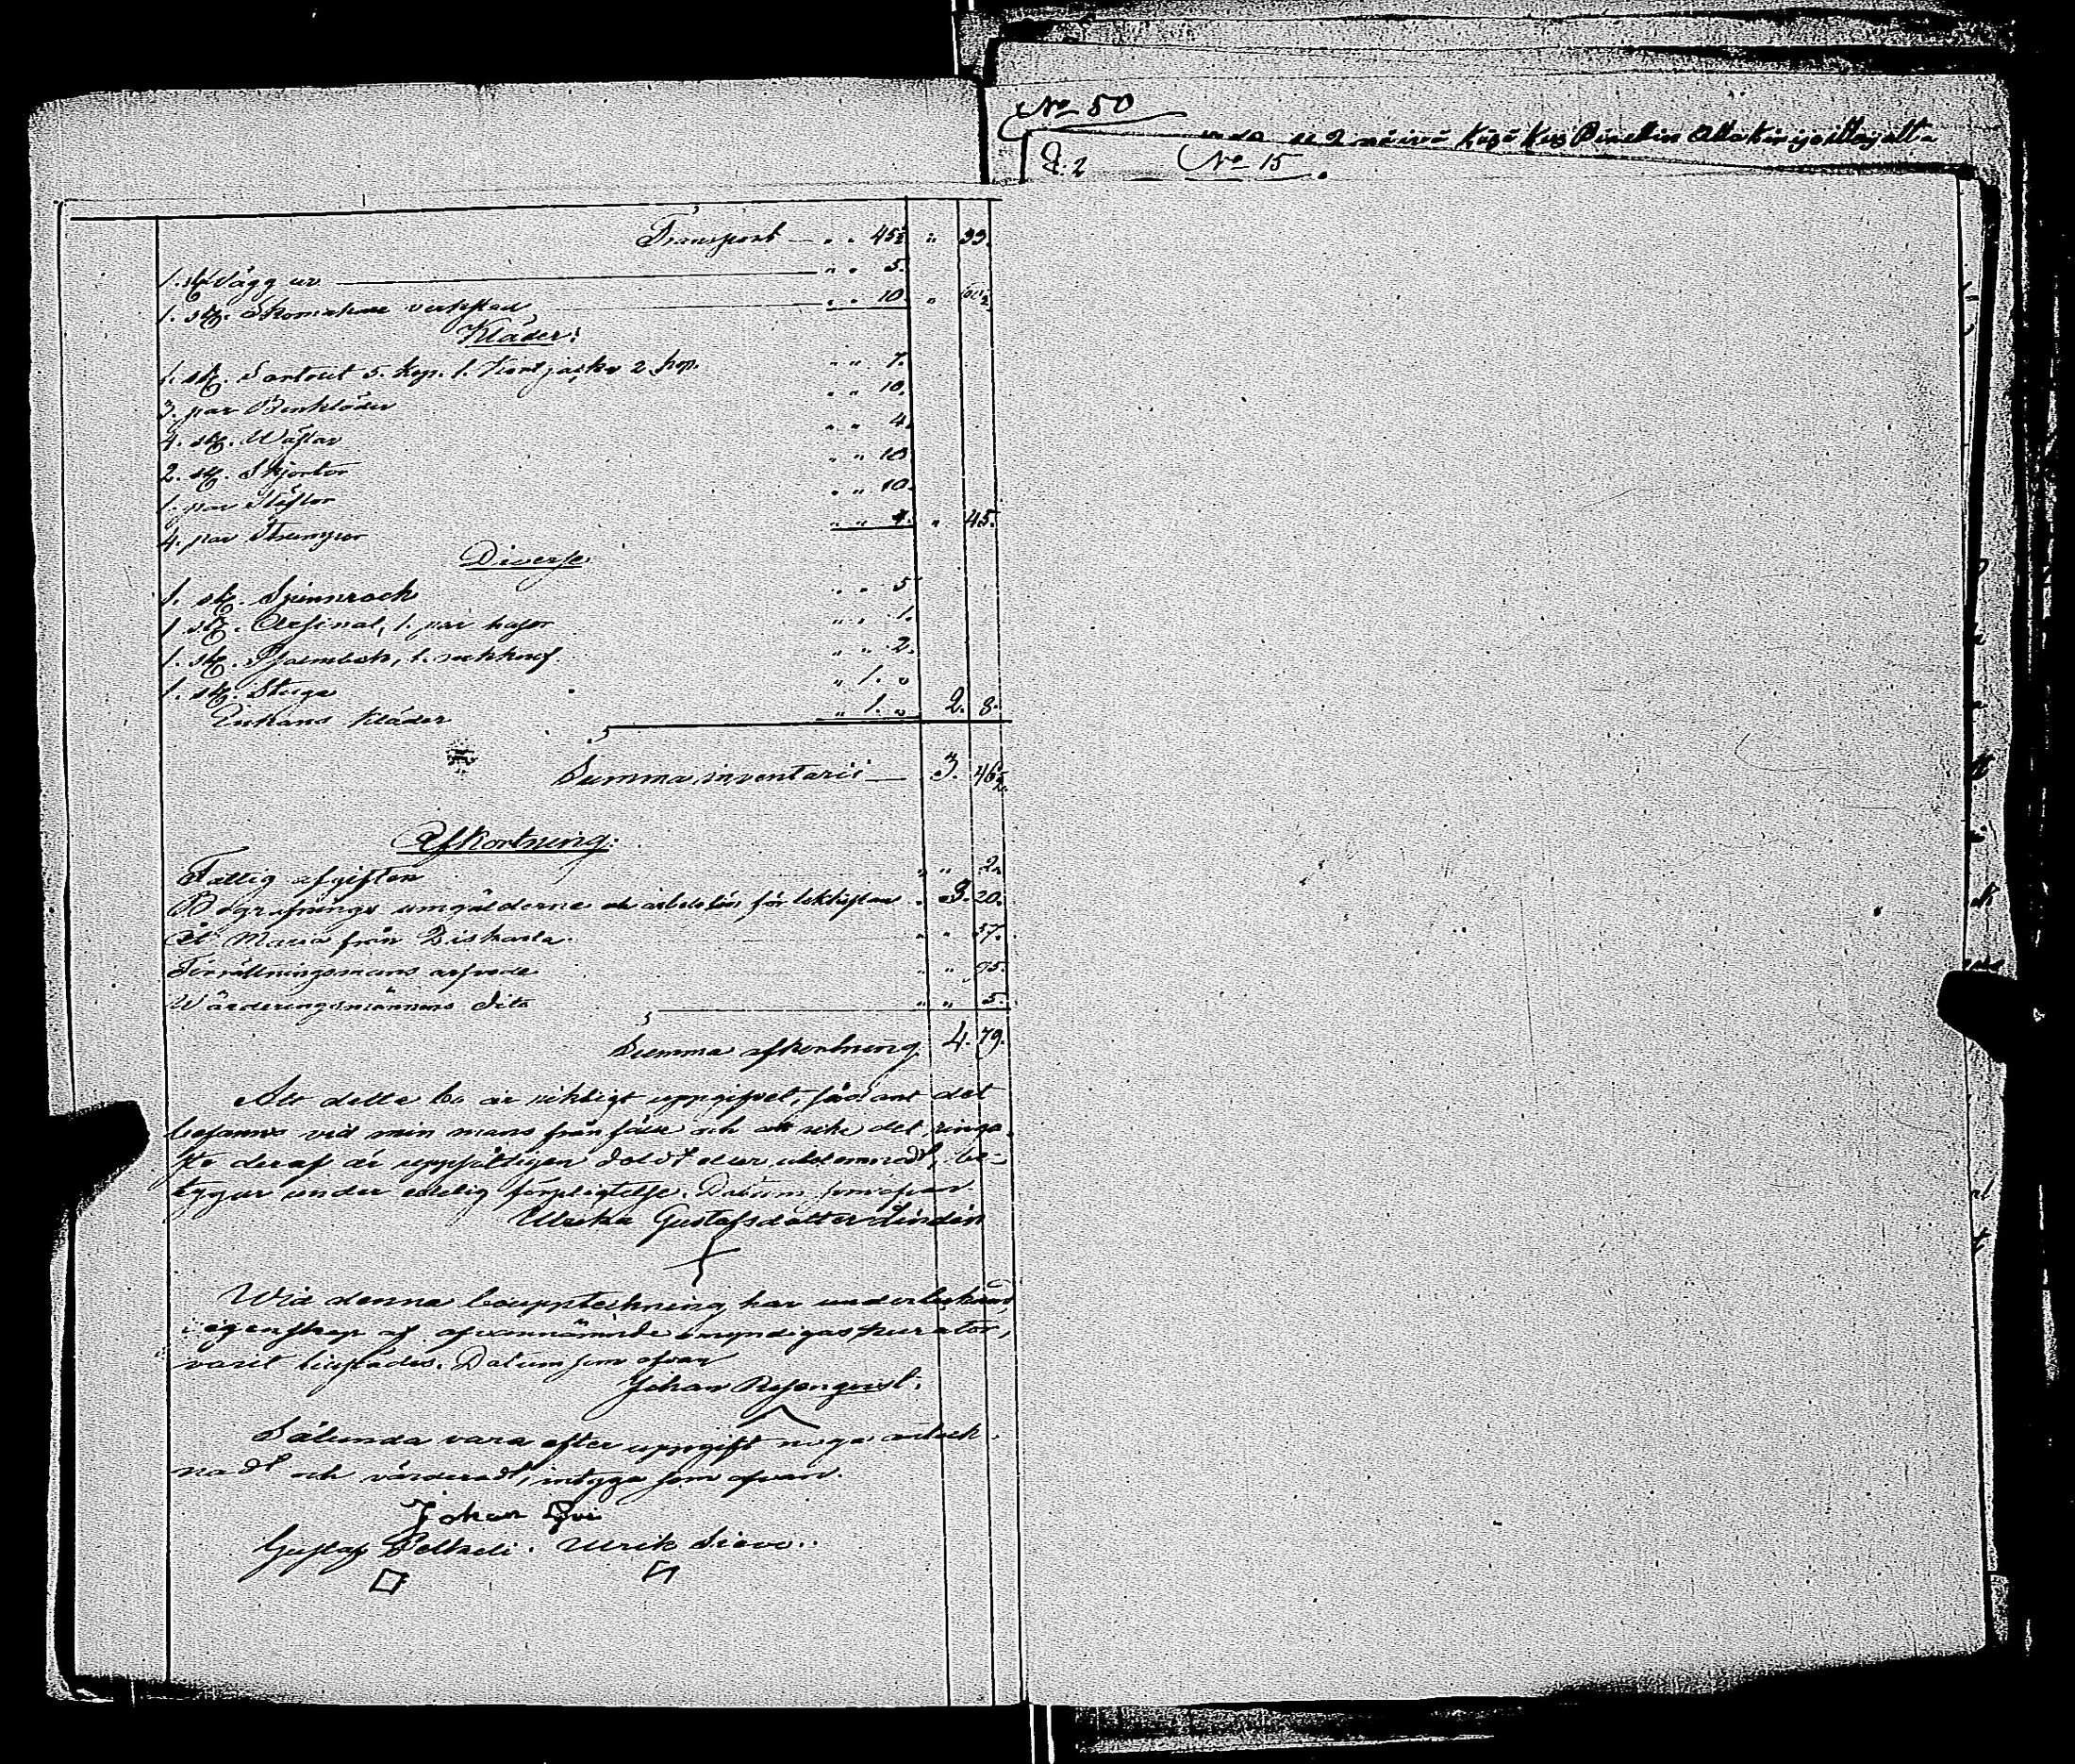 Transport — " " 45½ " 33.
1. st. Vägg ur — " " 5.
1. st. Skomakare verkstad — " " 10. " 60½
Kläder:
1. st. Sortout 5. kop. 1. Kort jacka 2. kop. " " 7.
3. par Benkläder " " 10.
4. st. Wästar " " 4.
2. st. Skjortor " " 10
1. par Stöflor " " 10.
4. par Strumpor " " 4. " 45.
Diverse
1. st. Spinnrock " " 5
1 st. Arsinal, 1. par " " 1.
1. st. Psalmbok, 1. " " 2.
1. st. Stuga " 1. "
Enkans kläder " 1. " 2. 8.
Summa inventarii — 3. 46½
Afkortning:
Fattig afgiften " " 2.
Begrafnings omgälderne och arbetslön för likkistan " 3. 20.
Åt Maria från " " 57.
Förrättningsmans arfvode " " 95.
Wärderingsmännens dito " " 5.
Summa afkortning 4. 79.
Att detta bo är riktigt uppgifvet, sådant det
befanns vid min mans frånfälle och att icke det ringa-
ste deraf är uppsåtligen doldt eller utelemnadt, be-
tygar under edelig förpligtelse. Datum som ofvan.
Ulrika Gustafsdotter Lindén
Wid denna bouppteckning har undertecknad,
i egenskap af ofvannämnde omyndigas kurator,
varit tillstädes. Datum som ofvan
Johan Rosenqvist.
Sålunda vara efter uppgift noga anteck-
nadt och värderadt, intyga som ofvan.
Johan
Gustaf Peltreli. Ulrik Sievo.
No 50
kus Pirstin Allakirjoittajalta
§. 2 No 15.